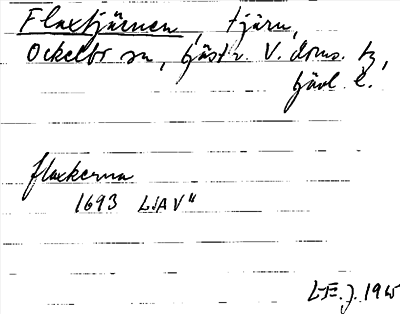 Flaxtjärnen, tjärn,
Ockelbo sn, Gästr. V. doms. tg,
Gävl. l.
flaxkerna
1693 LSA V"
1915